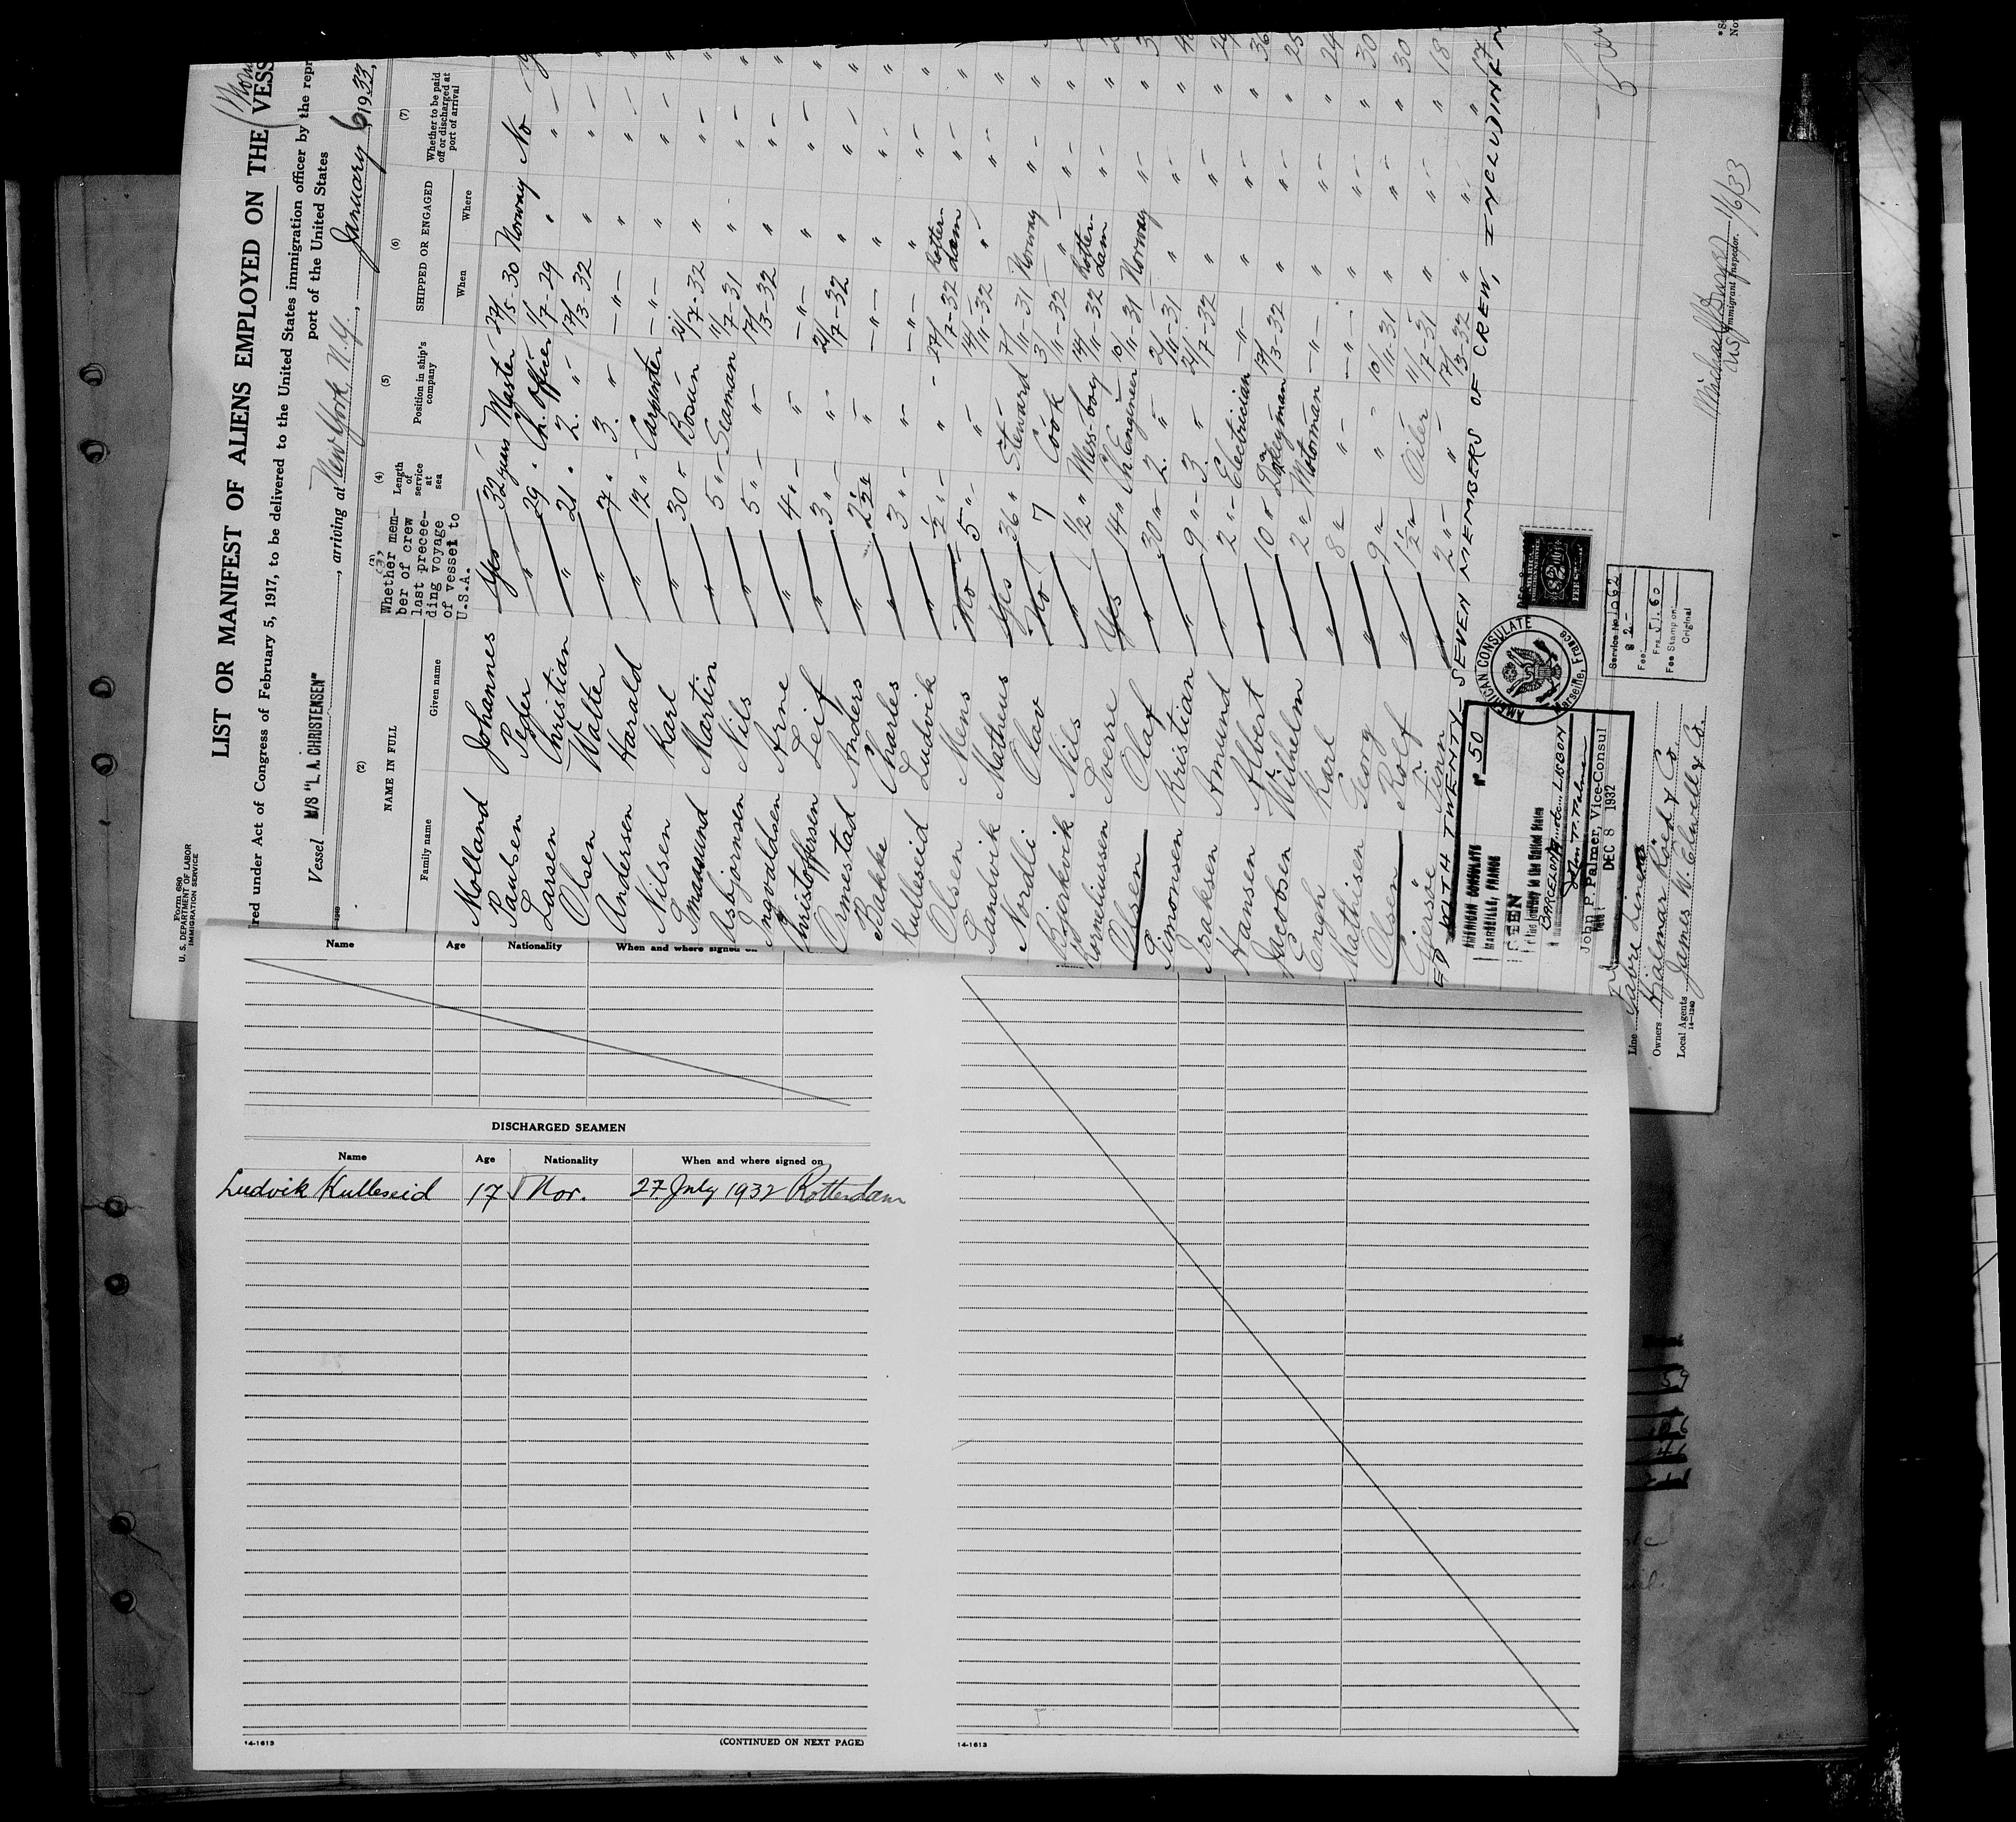 Form 680
U. S. DEPARTMENT OF LABOR
IMMIGRATION SERVICE
LIST OR MANIFEST OF ALIENS EMPLOYED ON THE VESS
red under Act of Congress of February 5, 1917, to be delivered to the United States immigration officer by the repr
port of the United States
Vessel M/S "L. A. CHRISTENSEN", arriving at New York, N.Y., January 6 1933,
(2) (3) (4) (5) (6) (7)
NAME IN FULL
Family name Given name
Whether mem-
ber of crew
last precee-
ding voyage
of vessel to
U.S.A.
Length
of
service
at
sea
Position in ship's
company
SHIPPED OR ENGAGED
When Where
Whether to be paid
off or discharged at
port of arrival
Molland Johannes Yes 32 years Master 27/5-30 Norway No
Paulsen Peder " 29 " Ch. Officer 1/7-29 " "
Larsen Christian " 21 " 2. " 17/3-32 " "
Olsen Walter " 7 " 3. " " "
Andersen Harald " 12 " Carpenter " "
Nilsen Karl " 30 " Bosun 21/7-32 " "
Smaasund Martin " 5 " Seaman 11/7-31 " "
Asbjornsen Nils " 5 " " 17/3-32 " "
Ingvaldsen Arne " 4 " " " "
Christoffersen Leif " 3 " " 21/7-32 " "
Ormestad Anders " 2½ " " " "
Bakke Charles " 3 " " " "
Kulleseid Ludvik " ½ " " 27/7-32 Rotter-dam "
Olsen Mens No 5 " " 14/11-32 " "
Sandvik Matheus Yes 36 " Steward 7/11-31 Norway "
Nordli Olav No 7 Cook 3/11-32 " "
Bjerkvik Nils " ½ " Mess-boy 14/11-32 Rotter-dam "
Korneliussen Sverre Yes 14 " Ch. Engineer 10/11-31 Norway "
Olsen Olaf " 30 " 2. " 2/11-31 " "
Simonsen Kristian " 9 " 3 " 21/7-32 " "
Isaksen Amund " 2 " Electrician " "
Hansen Albert " 10 " Donkeyman 17/3-32 " "
Jacobsen Wilhelm " 2 " Motorman " "
Engh Karl " 8 " " " "
Mathisen Georg " 9 " " 10/11-31 " "
Olsen Rolf " 1½ " Oiler 11/7-31 " "
Gjersoe Finn " 2 " " 17/3-32 " "
ED WITH TWENTY-SEVEN MEMBERS OF CREW, INCLUDING
AMERICAN CONSULATE
MARSEILLE, FRANCE
No 50
SEEN
BARCELONA LISBON
John P. Palmer
John P. Palmer, Vice-Consul
DEC 8 1932
AMERICAN CONSULATE
Marseille, France
Service No. 1062
Fee: $ 2-
Frs 51.60
Fee Stamp on
Original
Line Fabre Line
Owners Hjalmar Röed & Co.
Local Agents James W. Elwell & Co.
14-1240
1/6/33
Immigrant Inspector.
Name Age Nationality When and where signed on
DISCHARGED SEAMEN
Name Age Nationality When and where signed on
Ludvik Kulleseid 17 Nor. 27 July 1932 Rotterdam
14-1613
(CONTINUED ON NEXT PAGE)
14-1613